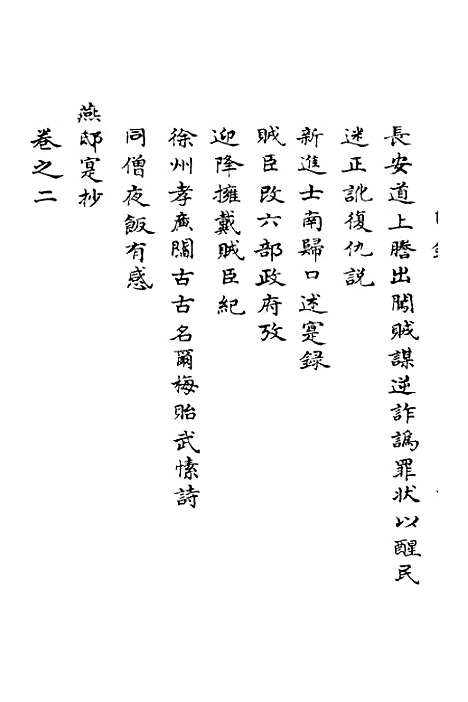 長安道上謄出闖賊謀逆詐譌罪状以醒民
迷正訛復仇説
新進士南歸口述寔録
賊臣改六部政府攷
迎降擁戴賊臣紀
徐州孝廣闊古古名爾梅貽武愫詩
同僧夜飯有感
燕邸寔抄
卷之二